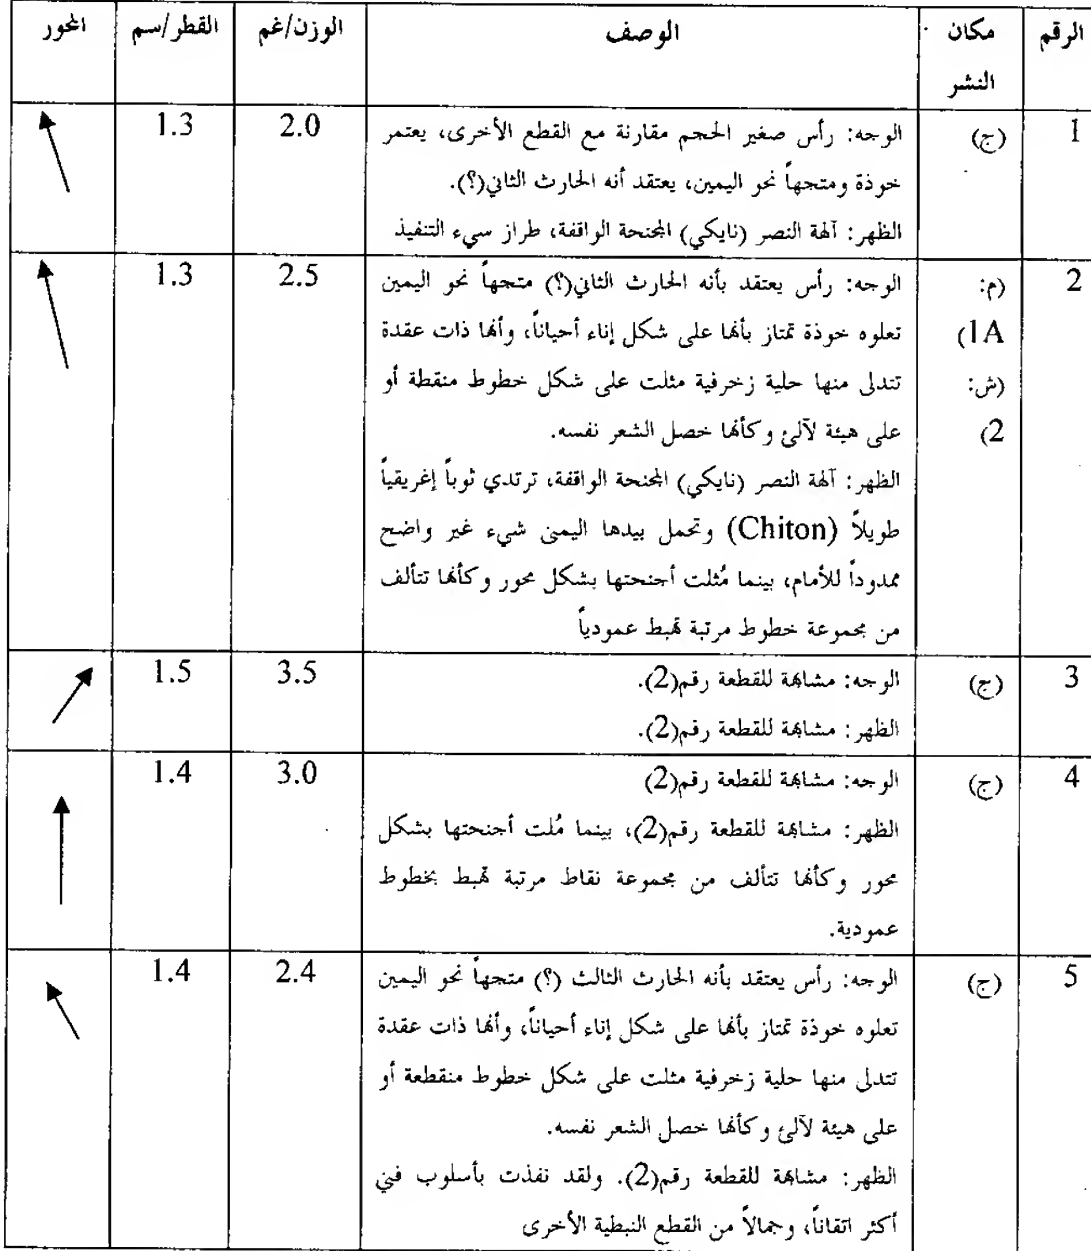 الرقم مكان النشر الوصف الوزن/غم القطر/سم المحور
1 (ج) الوجه: رأس صغير الحجم مقارنة مع القطع الأخرى، يعتمر 2.0 1.3
خوذة ومتجهاً نحو اليمين، يعتقد أنه الحارث الثاني(؟).
الظهر: آلهة النصر (نايكي) المجنحة الواقفة، طراز سيء التنفيذ
2 (م: الوجه: رأس يعتقد بأنه الحارث الثاني(؟) متجهاً نحو اليمين 2.5 1.3
1A) تعلوه خوذة تمتاز بأنها على شكل إناء أحياناً، وأنها ذات عقدة
(ش: تتدلى منها حلية زخرفية مثلت على شكل خطوط منقطة أو
2) على هيئة لآلئ وكأنها خصل الشعر نفسه.
الظهر: آلهة النصر (نايكي) المجنحة الواقفة، ترتدي ثوباً إغريقياً
طويلاً (Chiton) وتحمل بيدها اليمنى شيء غير واضح
ممدوداً للأمام، بينما مُثلت أجنحتها بشكل محور وكأنها تتألف
من مجموعة خطوط مرتبة تهبط عمودياً
3 (ج) الوجه: مشابهة للقطعة رقم(2). 3.5 1.5
الظهر: مشابهة للقطعة رقم(2).
4 (ج) الوجه: مشابهة للقطعة رقم(2) 3.0 1.4
الظهر: مشابهة للقطعة رقم(2)، بينما مُلت أجنحتها بشكل
محور وكأنها تتألف من مجموعة نقاط مرتبة تهبط بخطوط
عمودية.
5 (ج) الوجه: رأس يعتقد بأنه الحارث الثالث (؟) متجهاً نحو اليمين 2.4 1.4
تعلوه خوذة تمتاز بأنها على شكل إناء أحياناً، وأنها ذات عقدة
تتدلى منها حلية زخرفية مثلت على شكل خطوط منقطعة أو
على هيئة لآلئ وكأنها خصل الشعر نفسه.
الظهر: مشابهة للقطعة رقم(2). ولقد نفذت بأسلوب فني
أكثر اتقاناً، وجمالاً من القطع النبطية الأخرى